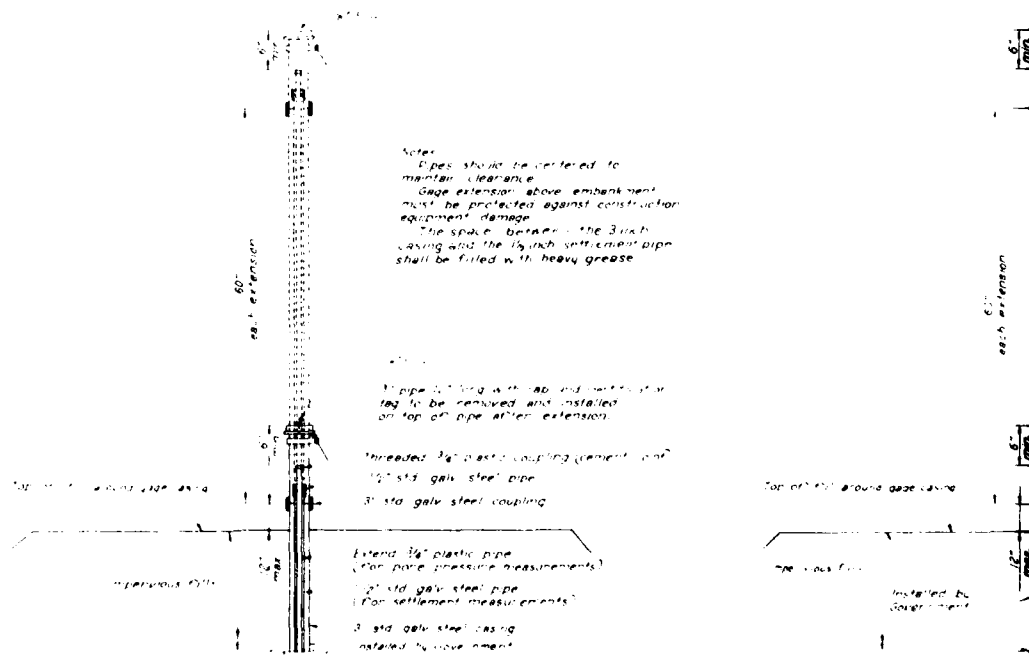 6"
min
60"
each extension
Notes
Pipes should be centered to
maintain clearance
Gage extension above embankment
must be protected against construction
equipment damage
The space between the 3 inch
casing and the 1½ inch settlement pipe
shall be filled with heavy grease
3" pipe long with cap and
tag to be removed and installed
on top of pipe after extension.
6"
min
Threaded ¾" plastic coupling (cement joint)
std galv steel pipe
3" std galv steel coupling
Top of around gage casing
12"
max
Extend ¾" plastic pipe
(for pore pressure measurements)
std galv steel pipe
(for settlement measurements)
3" std galv steel casing
installed by government
impervious fill
6"
min
each extension
6"
min
Top of fill around gage casing
12"
max
fill
Installed by
Government